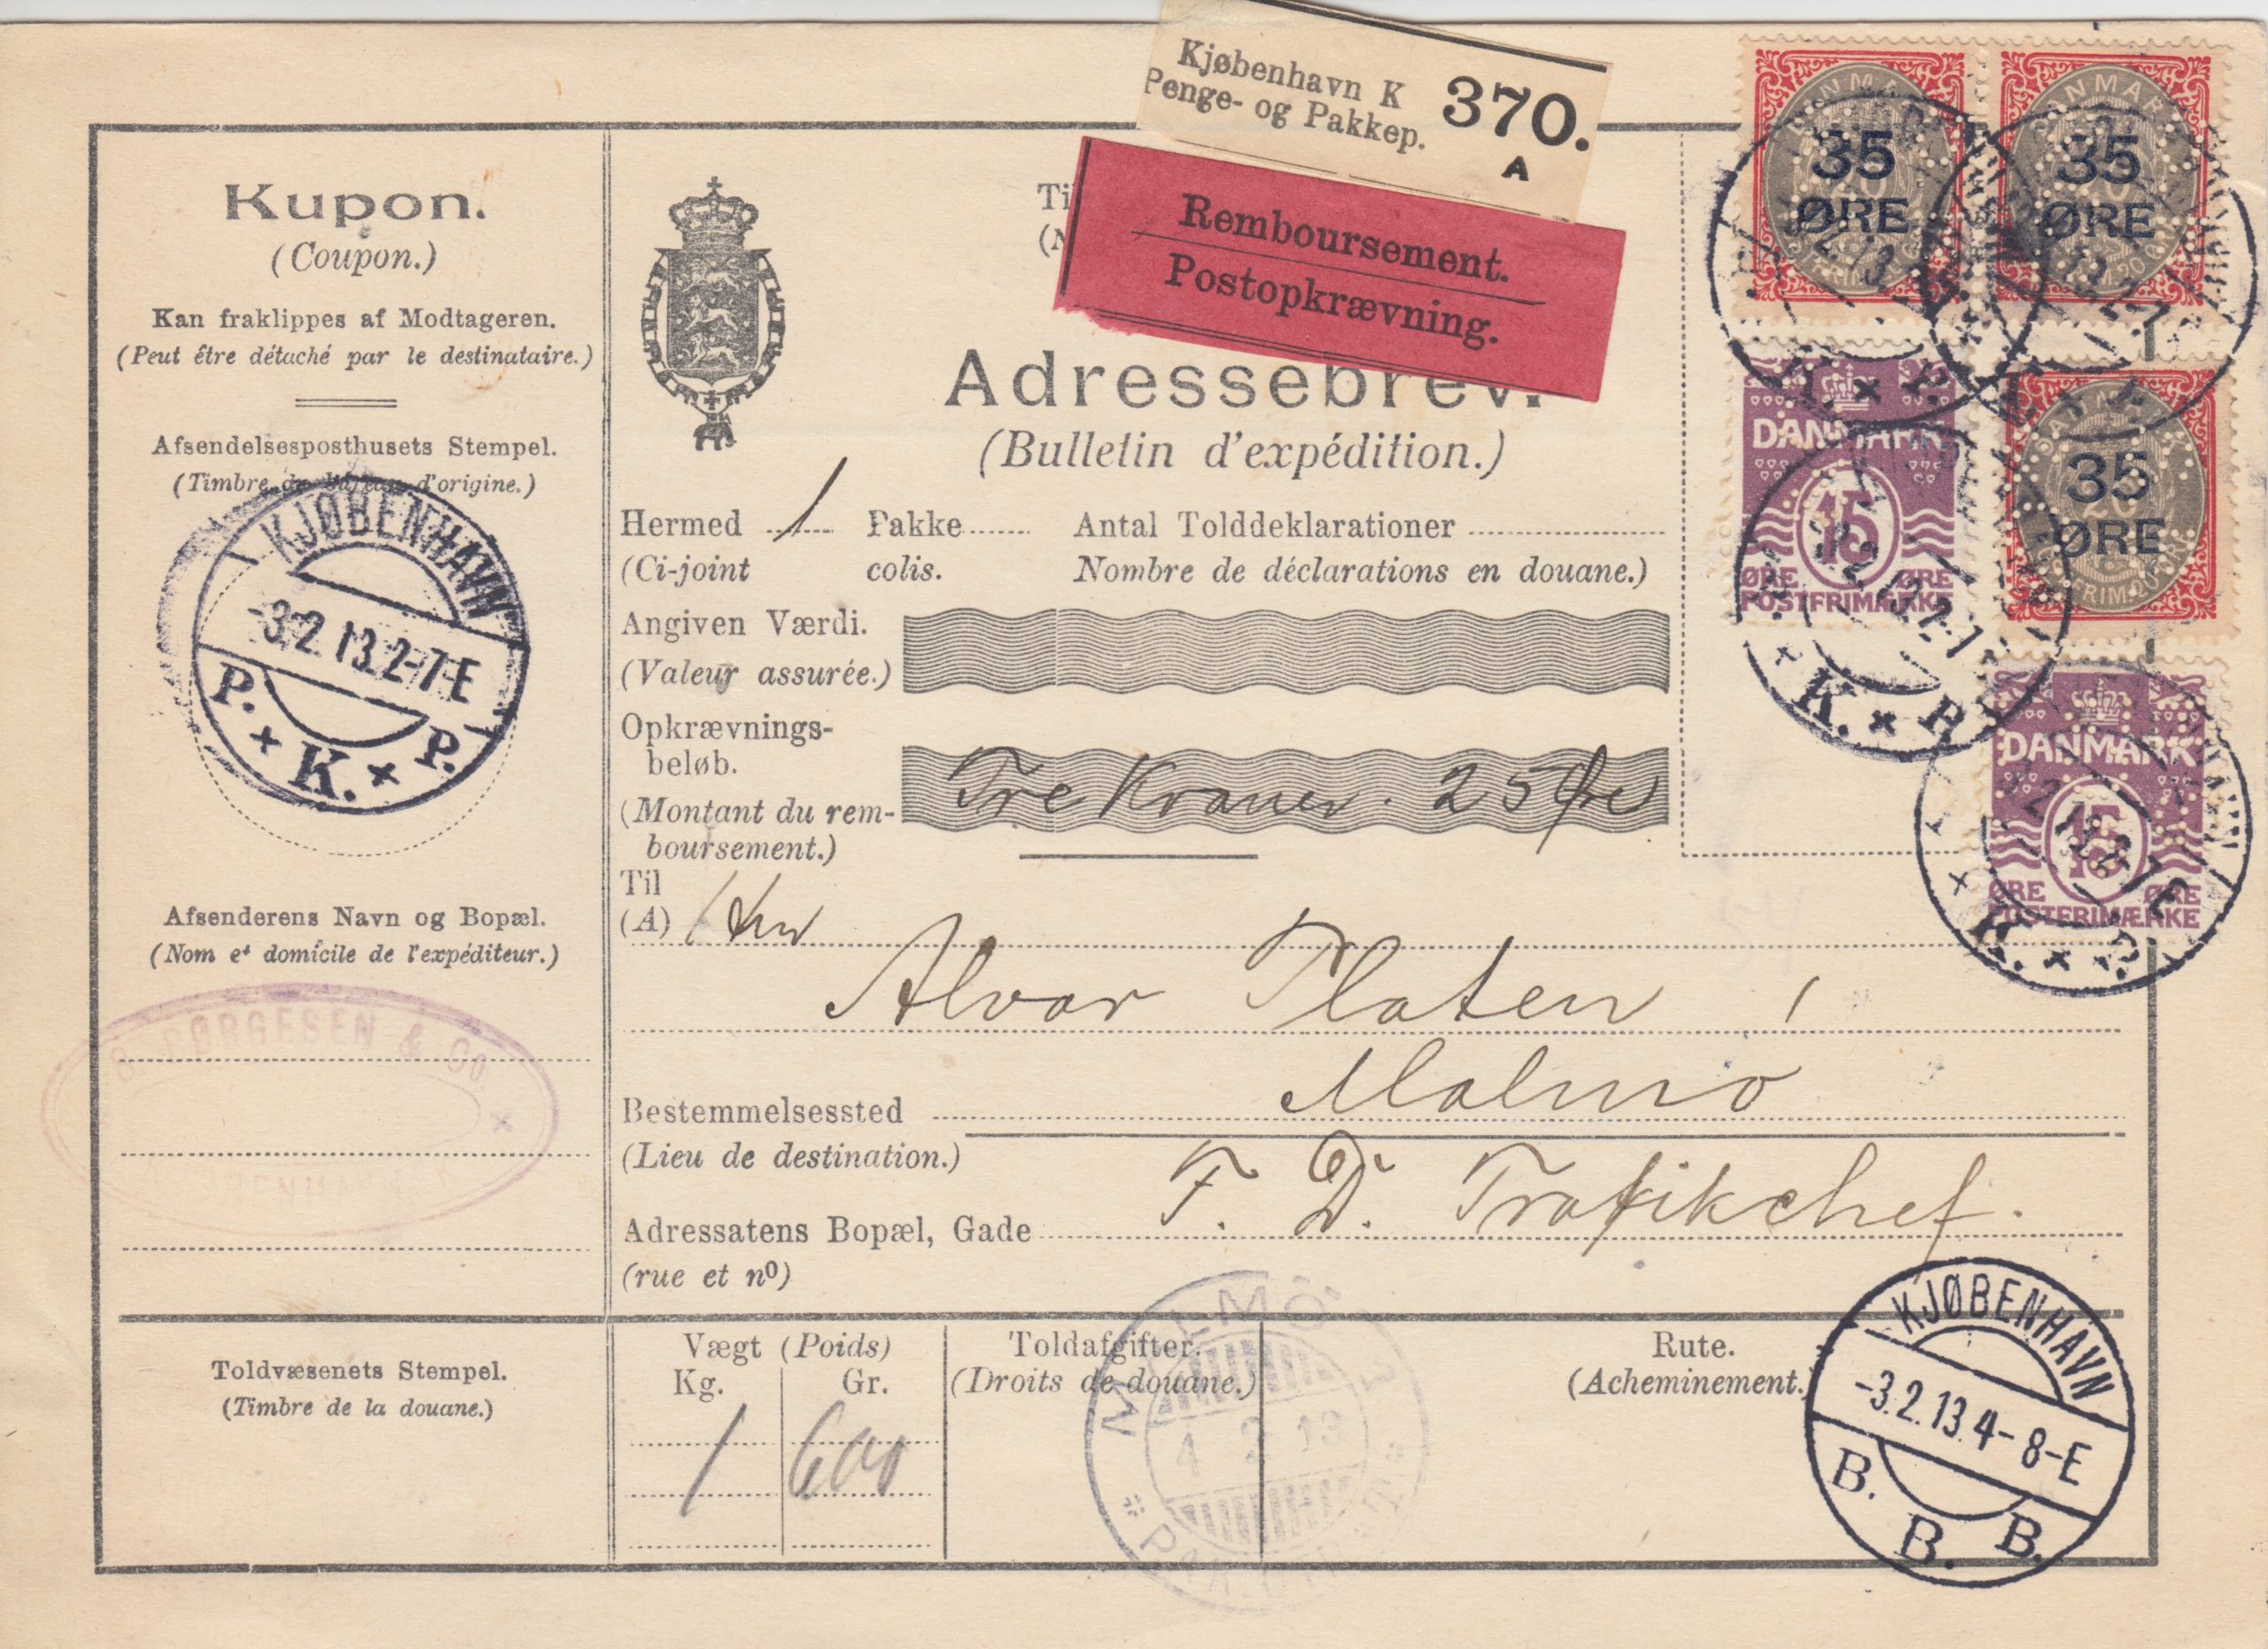 Kjøbenhavn K
Penge- og Pakkep.
370.
A
Remboursement.
Postopkrævning.
Kupon.
(Coupon.)
Kan fraklippes af Modtageren.
(Peut être détaché par le destinataire.)
Afsendelsesposthusets Stempel.
(Timbre du bureau d'origine.)
KJØBENHAVN
-3.2.13.2-7-E
P. K. P.
Afsenderens Navn og Bopæl.
(Nom et domicile de l'expéditeur.)
BØRGESEN & Co
Toldvæsenets Stempel.
(Timbre de la douane.)
Adressebrev.
(Bulletin d'expédition.)
Hermed 1 Pakke Antal Tolddeklarationer
(Ci-joint colis. Nombre de déclarations en douane.)
Angiven Værdi.
(Valeur assurée.)
Opkrævnings-
beløb.
Tre Kroner. 25 Øre
(Montant du rem-
boursement.)
Til
(A)
Alvar Platen
Bestemmelsessted Malmö
(Lieu de destination.)
F. D. Trafikchef.
Adressatens Bopæl, Gade
(rue et nº)
Vægt (Poids)
Kg. Gr.
1 600
Toldafgifter.
(Droits de douane.)
MALMÖ
4 2 13
Rute.
(Acheminement.)
KJØBENHAVN
-3.2.13.4-8-E
B. B. B.
DANMARK
35
ØRE
DANMARK
35
ØRE
DANMARK
15
ØRE ØRE
POSTFRIMÆRKE
K. P.
DANMARK
35
ØRE
DANMARK
15
ØRE ØRE
POSTFRIMÆRKE
K. P.